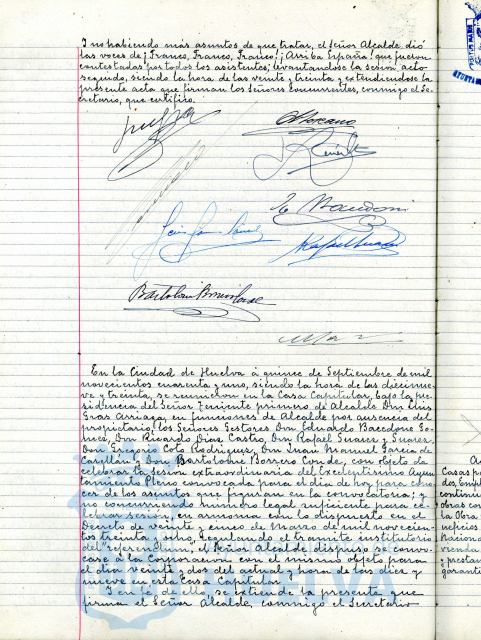 Y no habiendo más asuntos de que tratar, el Señor Alcalde dió
las voces de ¡Franco, Franco, Franco! ¡Arriba España! que fueron
contestadas por todos los asistentes; levantandose la sesión acto
seguido, siendo la hora de las veinte y treinta y extendiendose la
presente acta que firman los Señores concurrentes, conmigo el Se-
cretario, que certifico.
Rafael Suarez
Bartolomé
En la Ciudad de Huelva á quince de Septiembre de mil
novecientos cuarenta y uno, siendo la hora de las diecinue-
ve y treinta, se reunieron en la Casa Capitular, bajo la pre-
sidencia del Señor Teniente primero de Alcalde Don Luis
Gras Arriaga, en funciones de Alcalde por ausencia del
propietario, los Señores Gestores Don Eduardo Bacedone Go-
mez, Don Ricardo Diaz Castro, Don Rafael Suarez y Suarez,
Don Gregorio Coto Rodriguez, Don Juan Manuel Garcia de
y Don Bartolomé Borrero Conde, con objeto de
celebrar la sesión extraordinaria del Excelentisimo Ayun-
tamiento Pleno convocada para el dia de hoy para cono-
cer de los asuntos que figuran en la convocatoria; y
no concurriendo número legal suficiente para ce-
lebrar sesión, en armonia con lo dispuesto en el
Decreto de veinte y cinco de Marzo de mil novecien-
tos treinta y ocho, regulando el tramite institutorio
del "referendum, el Señor Alcalde dispuso se convo-
case á la Corporación con el mismo objeto para
el dia veinte y dos del actual y hora de las diez y
nueve en esta Casa Capitular.
Y en fe de ello, se extiende la presente que
firma el Señor Alcalde, conmigo el Secretario
Casas p
dos, Empl
continu
obras co
la Obra
nacional
vienda
y prestan
garantí